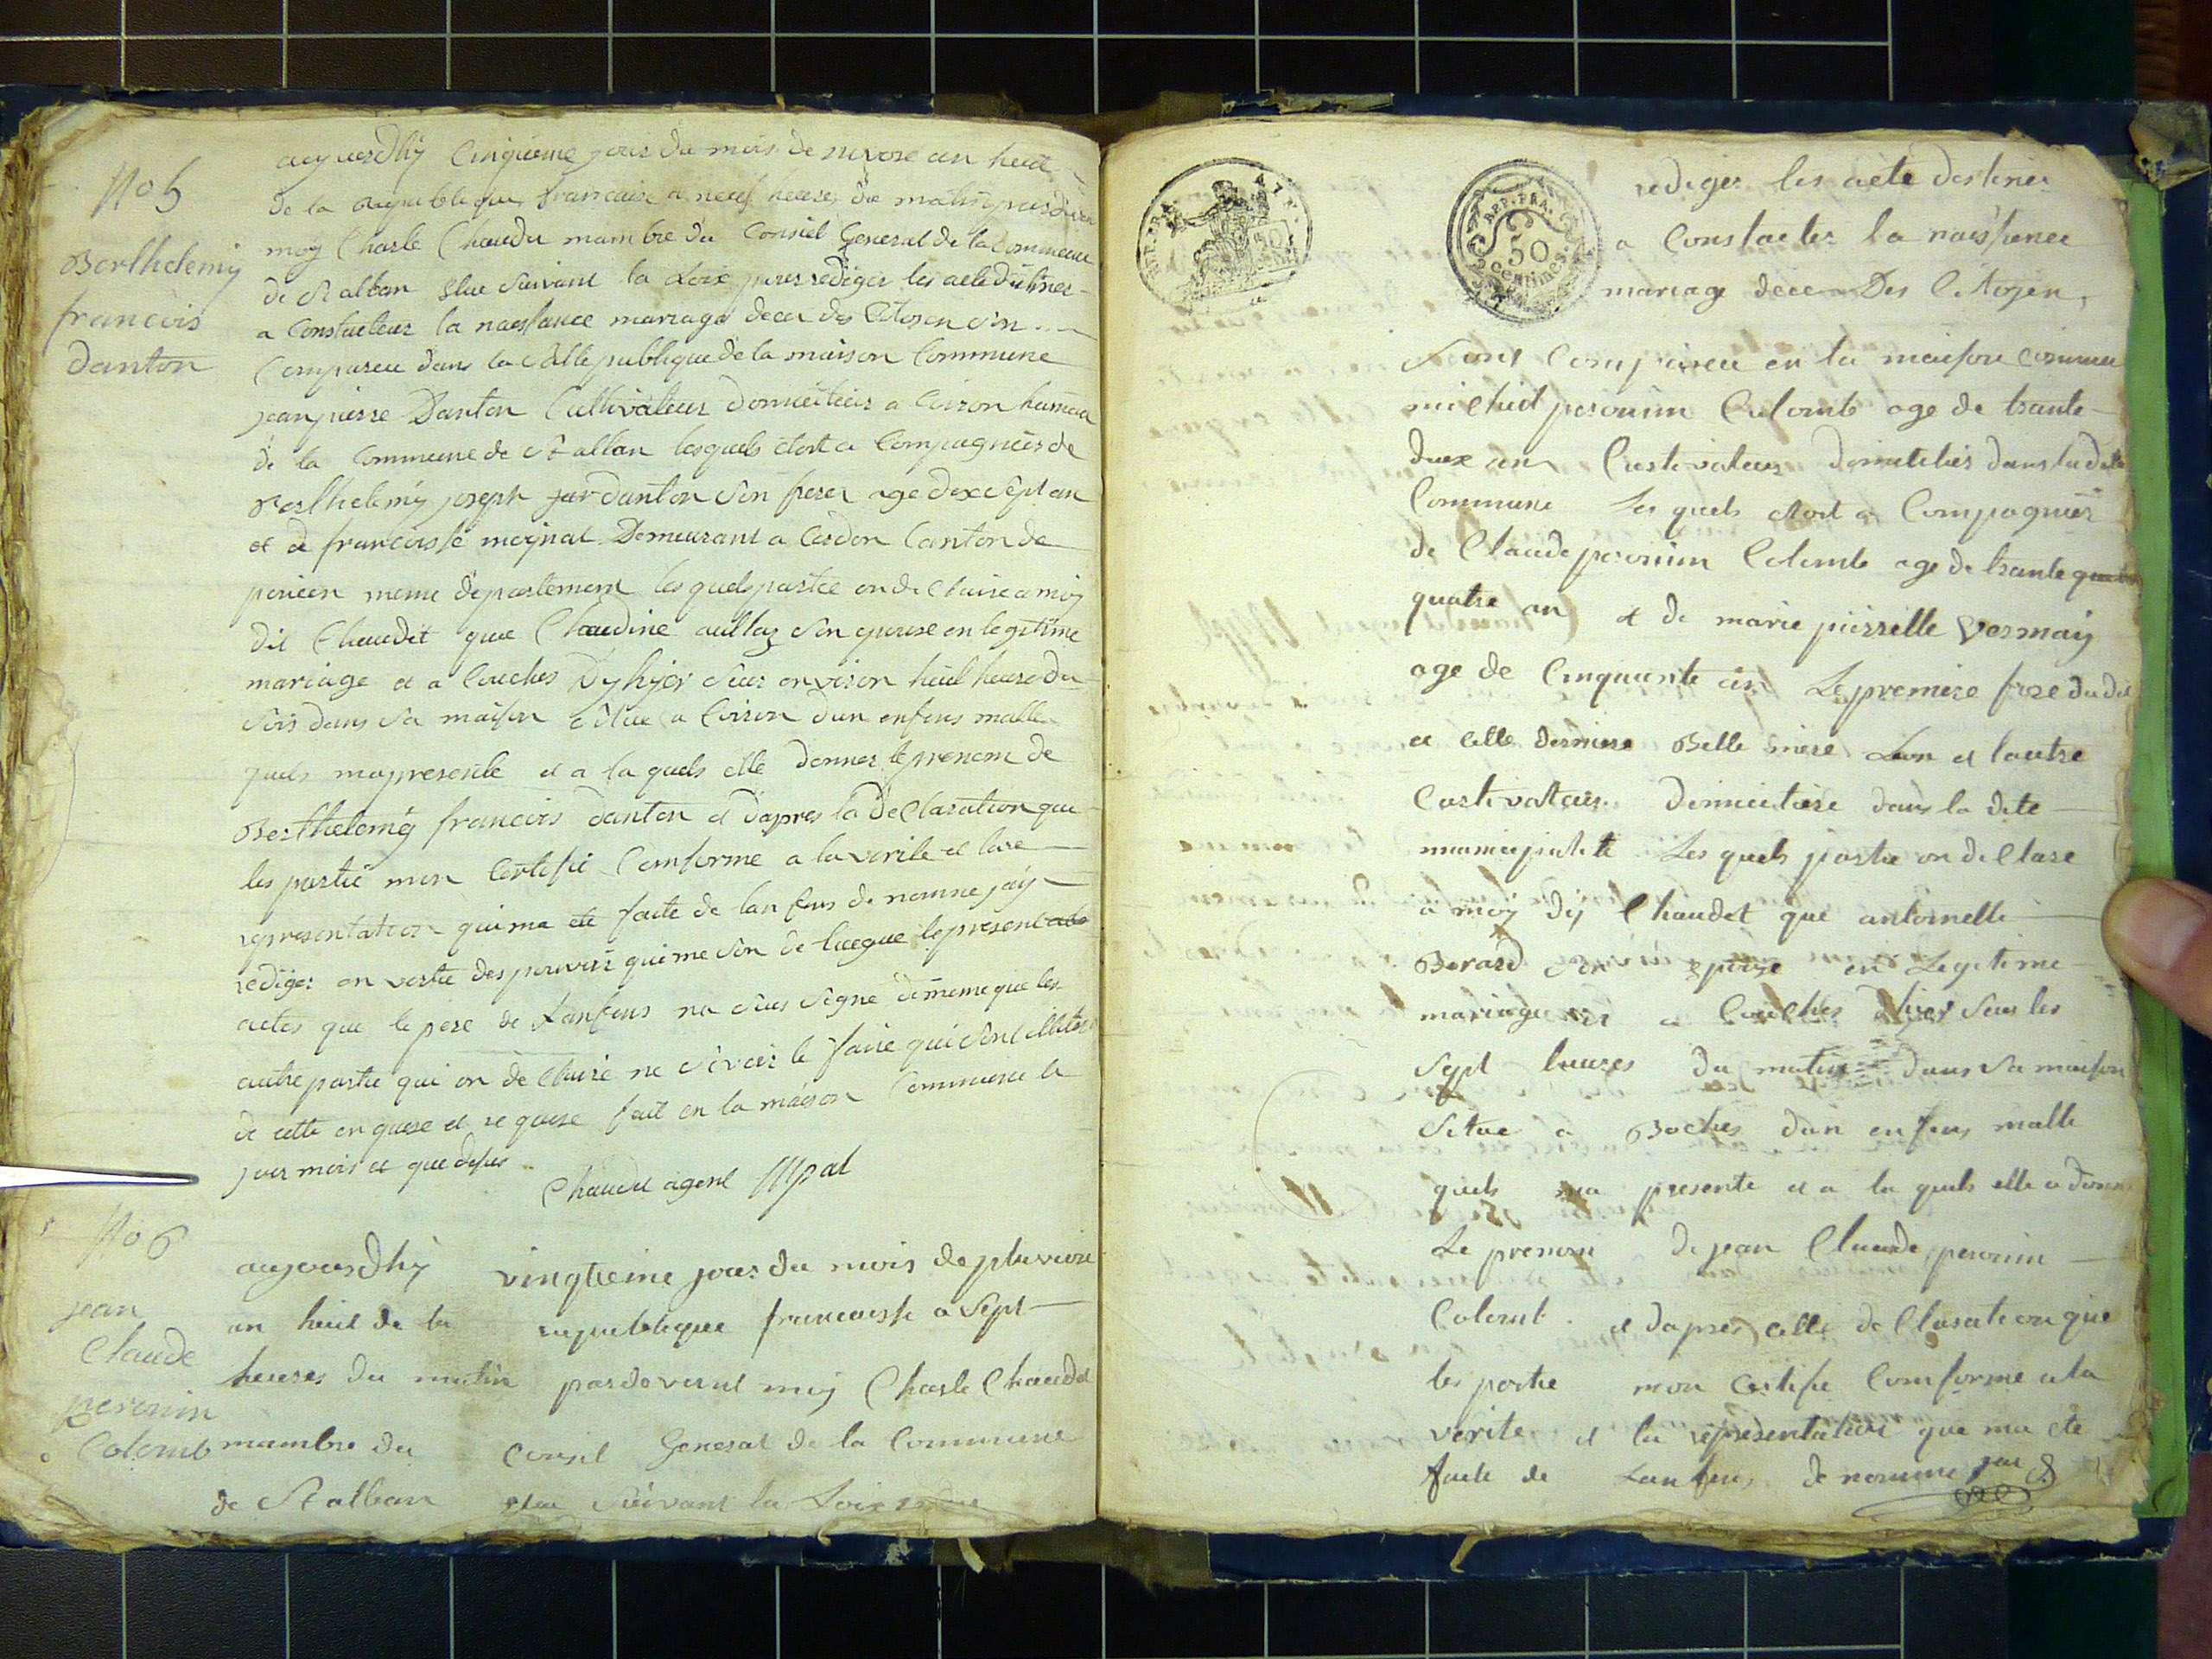 No 5
Berthelemy
francois
danton
aujourdhy Cinquieme jour du mois de nivose an huit
de la republique francaise a neuf heures du matin pardevan
moy Charle Chaudet mambre du Consiel General de la Commeune
de St alban elue suivant la Loix pour rediger les acte destines
a Constateur la naissance mariage deces des Citoyen son
Compareu dans la Salle publique de la maison Commune
jean pierre Danton Cultivateur domicilier a Coiron hameau
de la Commeune de St alban lesquels etoit a Compagniers de
Berthelemy joseph danton son frere age dixcept an
et de francoisse moynat Demeurant a Cerdon Canton de
poncin meme departement les quels partie on de Claire a moy
dit Chaudet que Claudine aullaz son epouse en legitime
mariage et a Couches Dyhyer sur environ huit heure du
soir dans sa maison situe a Coiron dun enfens malle
quels ma presente et a la quels elle donner le prenom de
Berthelemy francois danton et dapres la deClaration que
les partie mon Certifie Conforme a la verite et lare
representation qui ma ete faite de lan fens de nomne jay
rediger en vertu des pouvoir qui me son de luegue le present acte
actes que le pere de Lanfens na sus signe de meme que les
autre partie qui on de Claire ne Savoir le faire qui sont illetere
de cette en quere et re quere fait en la maison Commune le
jour mois et que desus
Chaudet agent Mpal
No 6
jean
Claude
peronin
Colomb
aujourdhy vingtieme jour du mois de pluviose
an huit de la republique francoisse a sept
heures du matin pardeverent moy Charle Chaudet
mambre du Consil General de la Commune
de St alban elue suivant la Loix
REP. FRA.
50
centimes.
rediger les acte destiner
a Constacter la naissence
mariage dece Des Citoyen,
sont Compareu en la maison Commeu
michiel peronin Colomb age de trante
deux an Custivateur domicilies dans la dite
Commune Les quels etoit a Compagnier
de Claude peronin Colomb age de trante
quatre an et de marie pierrette Vermay
age de Cinquante an Le premiere frere du dit
et cette derniere Belle mere Lun et lautre
Custivateur Domicitiere dans la dite
municipalite Les quels partie on de Clare
a moy dy Chaudet que antoinette
Berard son epouse en Legitime
mariage et a Couches dhyer sur les
sept heures du matin dans sa maison
Situe a Boches dun enfens malle
quels ma presente et a la quels elle a donne
Le prenom de jean Claude peronin
Colomb et dapres cette de Claration que
les partie mon Certifie Comforme a la
verite et la representation que ma ete
faite de Lanfens de nomme jai